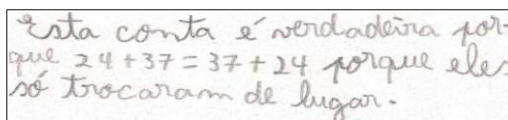 Esta conta é verdadeira por-
que 24+37=37+24 porque eles
só trocaram de lugar.